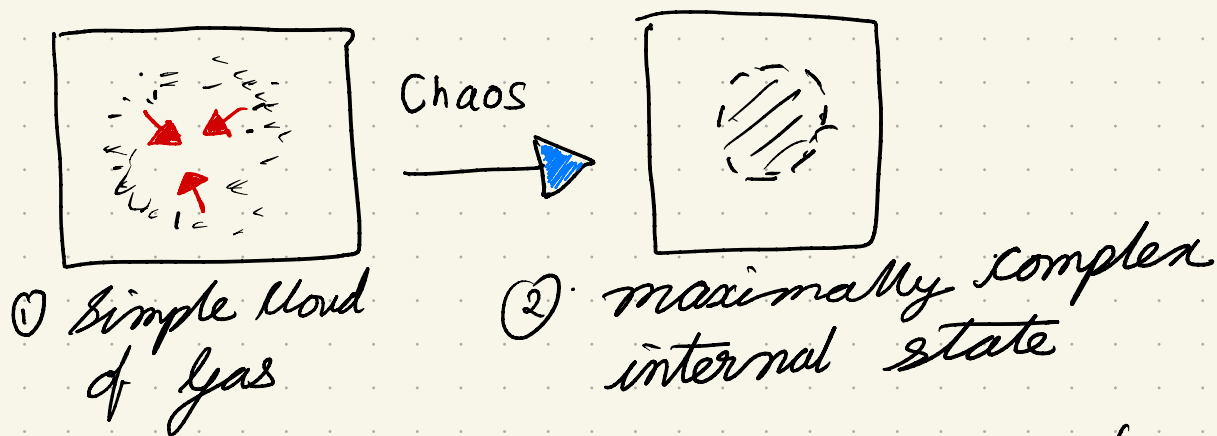 Chaos
① Simple cloud
of gas
② maximally complex
internal state